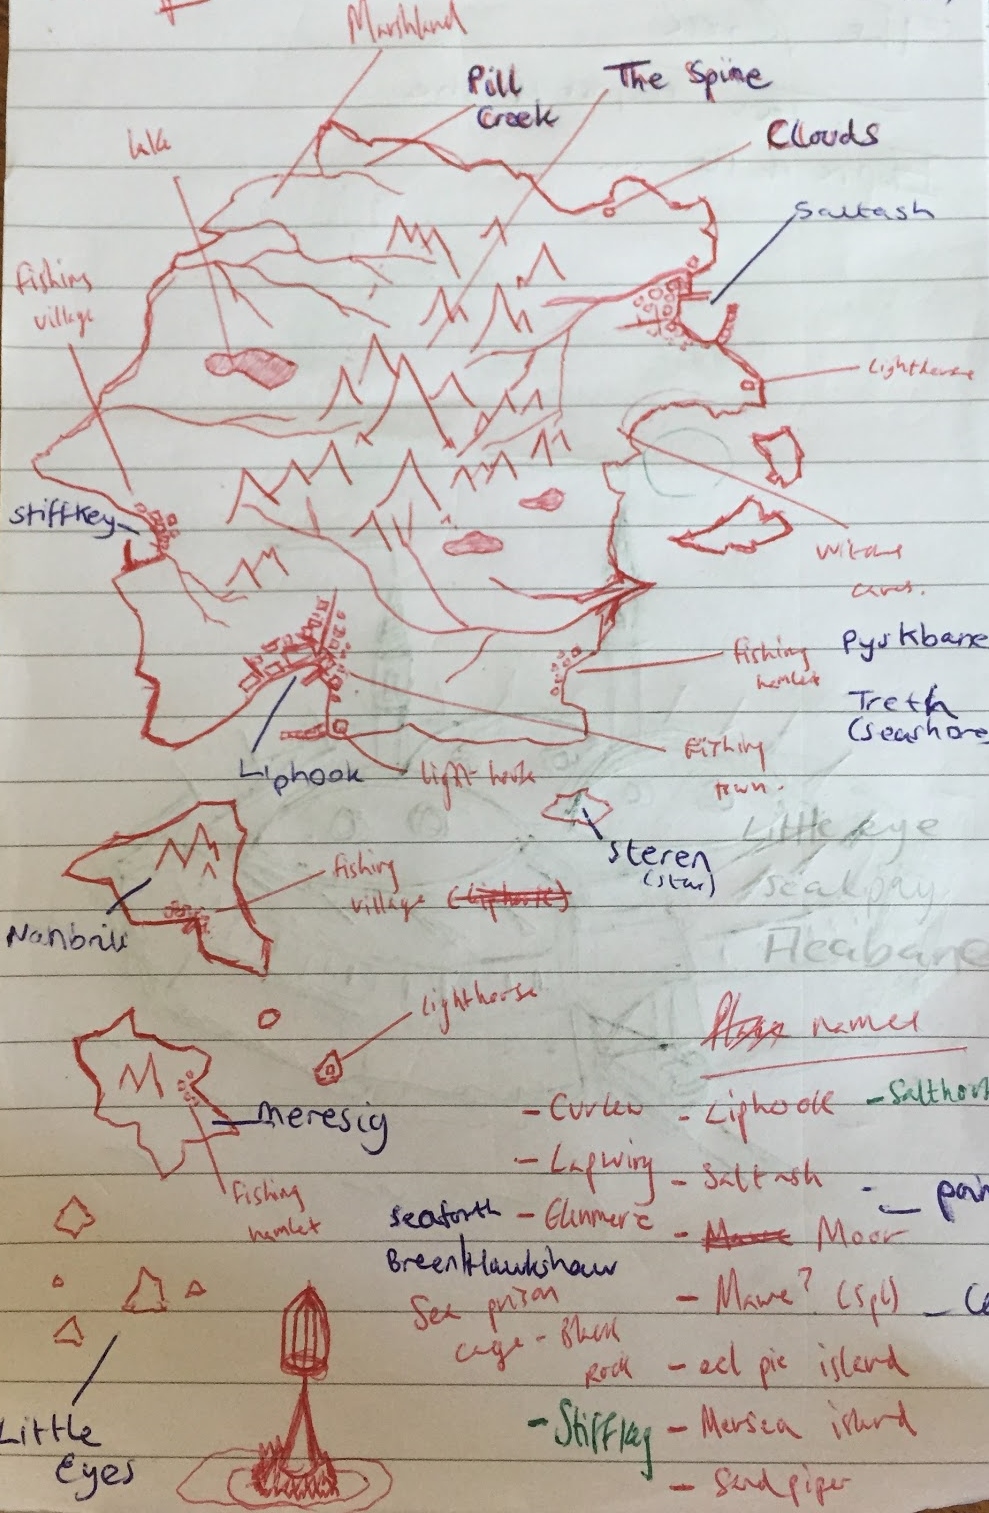 Marshland
Pill
Creek
The Spine
Clouds
lake
Saltash
fishing
village
Lighthouse
Stiffkey
caves.
Pyskbane
fishing
hamlet
Treth
(seashore
Fishing
town.
Liphook
Steren
(star)
Little eye
fishing
village
Nanbrik
Fleabane
Lighthouse
names
- Curlew
- Liphook
- Lapwing
- Saltash
Meresig
fishing
hamlet
Seaforth
- Moor
Breen/Hawkshaw
- Mawe? (Spl)
Sea prison
cage - Black
Rock
- eel pie island
- Stiffkey
- Mersea island
- Sandpiper
Little
Eyes